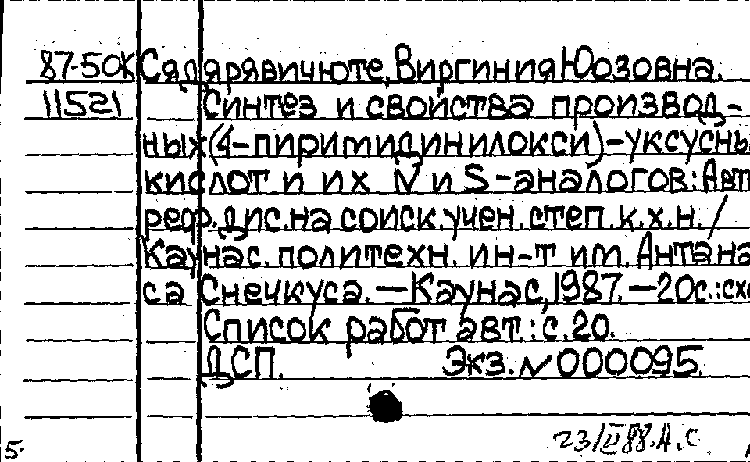 87-50к Сядярявичюте, Виргиния Юозовна.
11521 Синтез и свойства производ-
ных (4-пиримидинилокси)-уксусны
кислот и их N и S-аналогов: Авт
реф. дис. на соиск. учен. степ. к. х. н. /
Каунас. политехн. ин-т им. Антана
са Снечкуса. — Каунас, 1987. — 20с.: схе
Список работ авт.: с. 20.
ДСП. Экз. № 000095.
23/II 88. А. С
5.